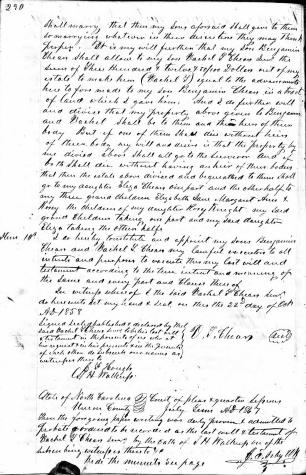 290
shall marry, that then my sons aforesaid shall give to them
so marrying whatever in their discretion they may think
proper. It is my will further that my son Benjamin
Chears shall allow to my son Rachel T Chears Senr the
sum of Three hundred & twelve Dollars out of my
estate to make him (Rachel T) equal to the advancements
heretofore made to my son Benjamin Chears in a tract
of land which I gave him. And I do further will
and devise that my property above given to Benjamin
and Rachel shall be to them and their heirs of their
body. But if one of them shall die without heirs
of their body my will and desire is that the property by
me devised above shall all go to the survivor and if
both shall die without having an heir of their bodies
that then the estate above devised and bequeathed to them shall
go to my daughter Eliza Chears one part and the other half to
my three grand children Elizabeth Jane Margaret Ann &
Rosy the children of my daughter Rosy Knight my said
grand children taking one part and my said daughter
Eliza taking the other half.
Item 10th I do hereby constitute and appoint my sons Benjamin
Chears and Rachel T Chears my lawful executors to all
intents and purposes to execute this my last will and
testament according to the true intent and meaning of
the same and every part and clause thereof
In witness whereof I the said Rachel T Chears Senr
do hereunto set my hand & seal, on this the 22nd day of Oct
AD 1858
Signed sealed published & declared by the
said Rachel T Chears Senr to be his last will
& testament in the presence of us who at
his request & in his presence and the presence
of each other do subscribe our names as
witnesses thereto
R. T. Chears (seal)
Hough
S H Walkup
State of North Carolina Court of pleas & quarter sessions
Union County July Term AD 1867
then the foregoing paper writing was duly proven & admitted to
probate & ordered to be recorded as the last will & testament of
Rachel T Chears Senr by the oath of S H Walkup one of the
subscribing witnesses thereto
vide the minutes on page